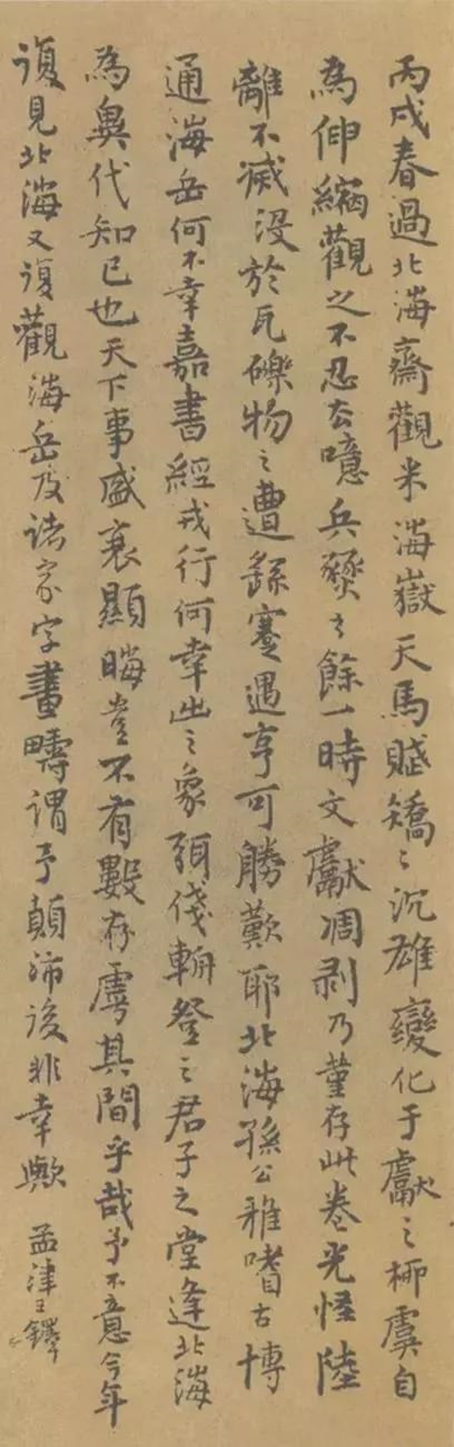 丙戌春過北海齋觀米海嶽天馬賦矯〻沉雄變化于獻之柳虞自
為伸縮觀之不忍去噫兵燹〻餘一時文獻凋剥乃堇存此卷光怪陸
離不滅沒於瓦礫物之遭繇蹇遇亨可勝歎耶北海孫公雅嗜古博
通海岳何不幸嘉書經戎行何幸出之象弭俴輈登之君子之堂逢北海
為異代知己也天下事盛衰顯晦豈不有數存虖其間乎哉予不意今年
復見北海又復觀海岳及諸家字畫疇謂予顛沛後非幸歟 孟津王鐸